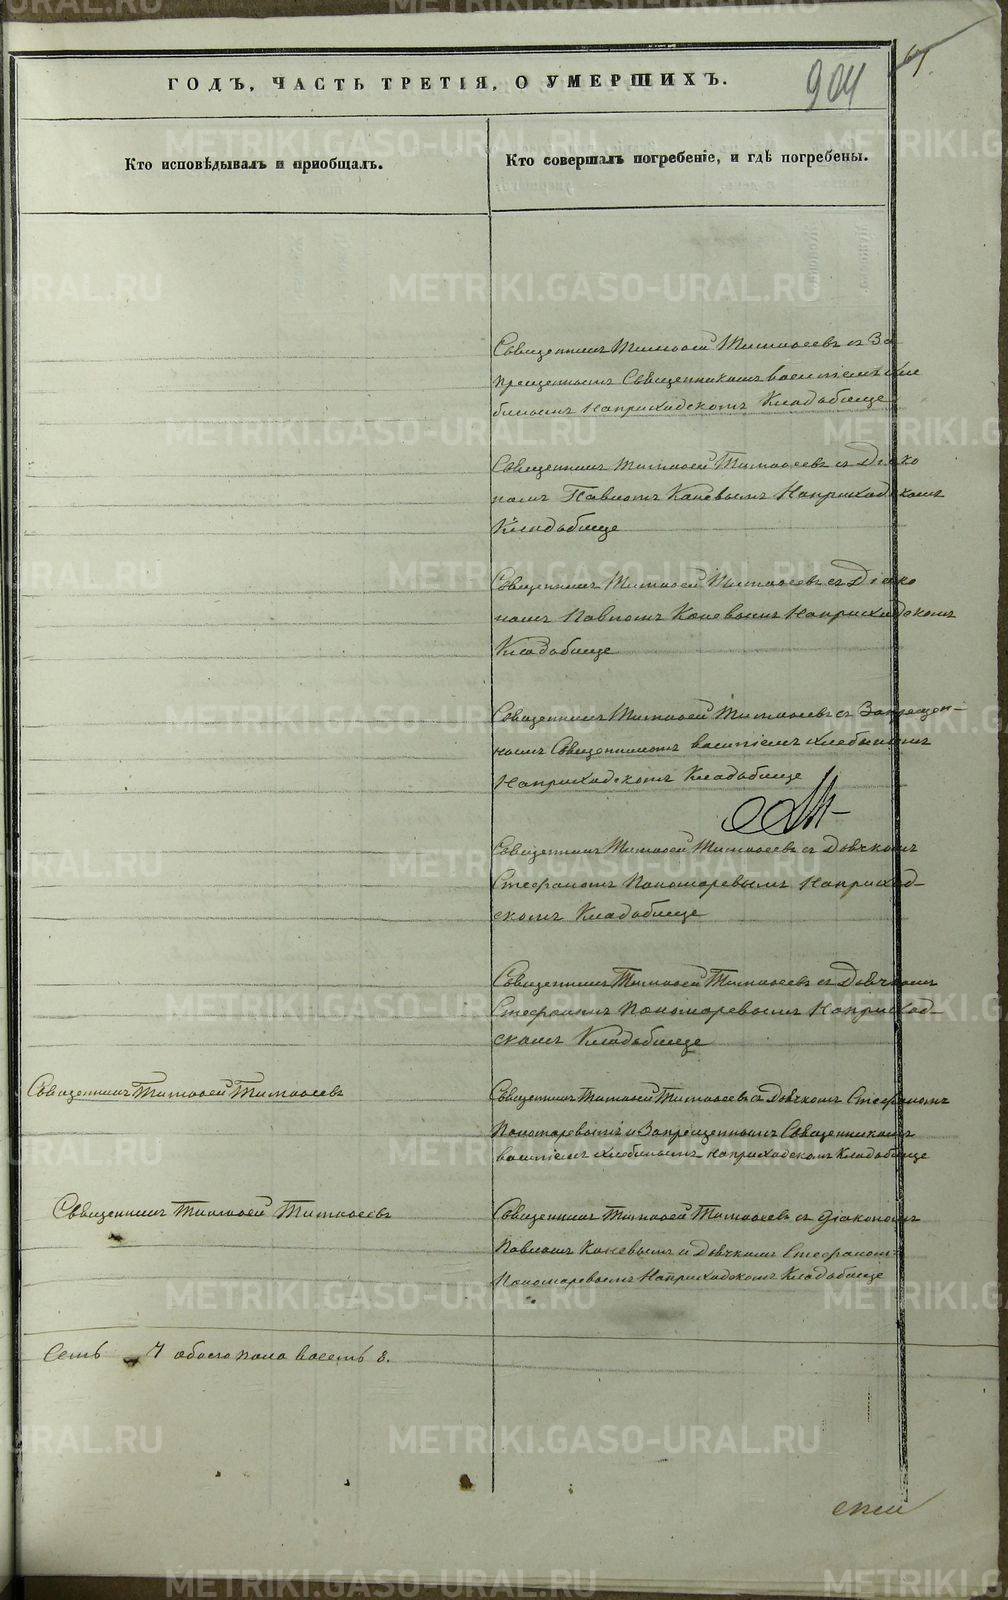 904
ГОДЪ, ЧАСТЬ ТРЕТІЯ, О УМЕРШИХЪ.
Кто исповѣдывалъ и приобщалъ.
Кто совершалъ погребеніе, и гдѣ погребены.
Священникъ Тимофей Тимофеевъ съ За
прещеннымъ Священникомъ василіемъ хле
бинымъ Наприходскомъ Кладбище
Священникъ Тимофей Тимофеевъ съ Діако
номъ Павломъ Каневымъ Наприходскомъ
Кладбище
Священникъ Тимофей Тимофеевъ съ Діако
номъ Павломъ Каневымъ Наприходскомъ
Кладбище
Священникъ Тимофей Тимофеевъ съ Запрещен-
нымъ Священникомъ василіемъ хлебинымъ
Наприходскомъ Кладбище
Священникъ Тимофей Тимофеевъ съ Дьячкомъ
Стефаномъ Пономаревымъ Наприход-
скомъ Кладбище
Священникъ Тимофей Тимофеевъ съ Дьячкомъ
Стефаномъ Пономаревымъ Наприход-
скомъ Кладбище
Священникъ Тимофей Тимофеевъ
Священникъ Тимофей Тимофеевъ съ Дьячкомъ Стефаномъ
Пономаревымъ и Запрещеннымъ Священникомъ
василіемъ хлебинымъ Наприходскомъ Кладбище
Священникъ Тимофей Тимофеевъ
Священникъ Тимофей Тимофеевъ съ Діакономъ
Павломъ Каневымъ и Дьячкомъ Стефаномъ
Пономаревымъ Наприходскомъ Кладбище
Семь 7 обоего пола восемь 8.
METRIKI.GASO-URAL.RU